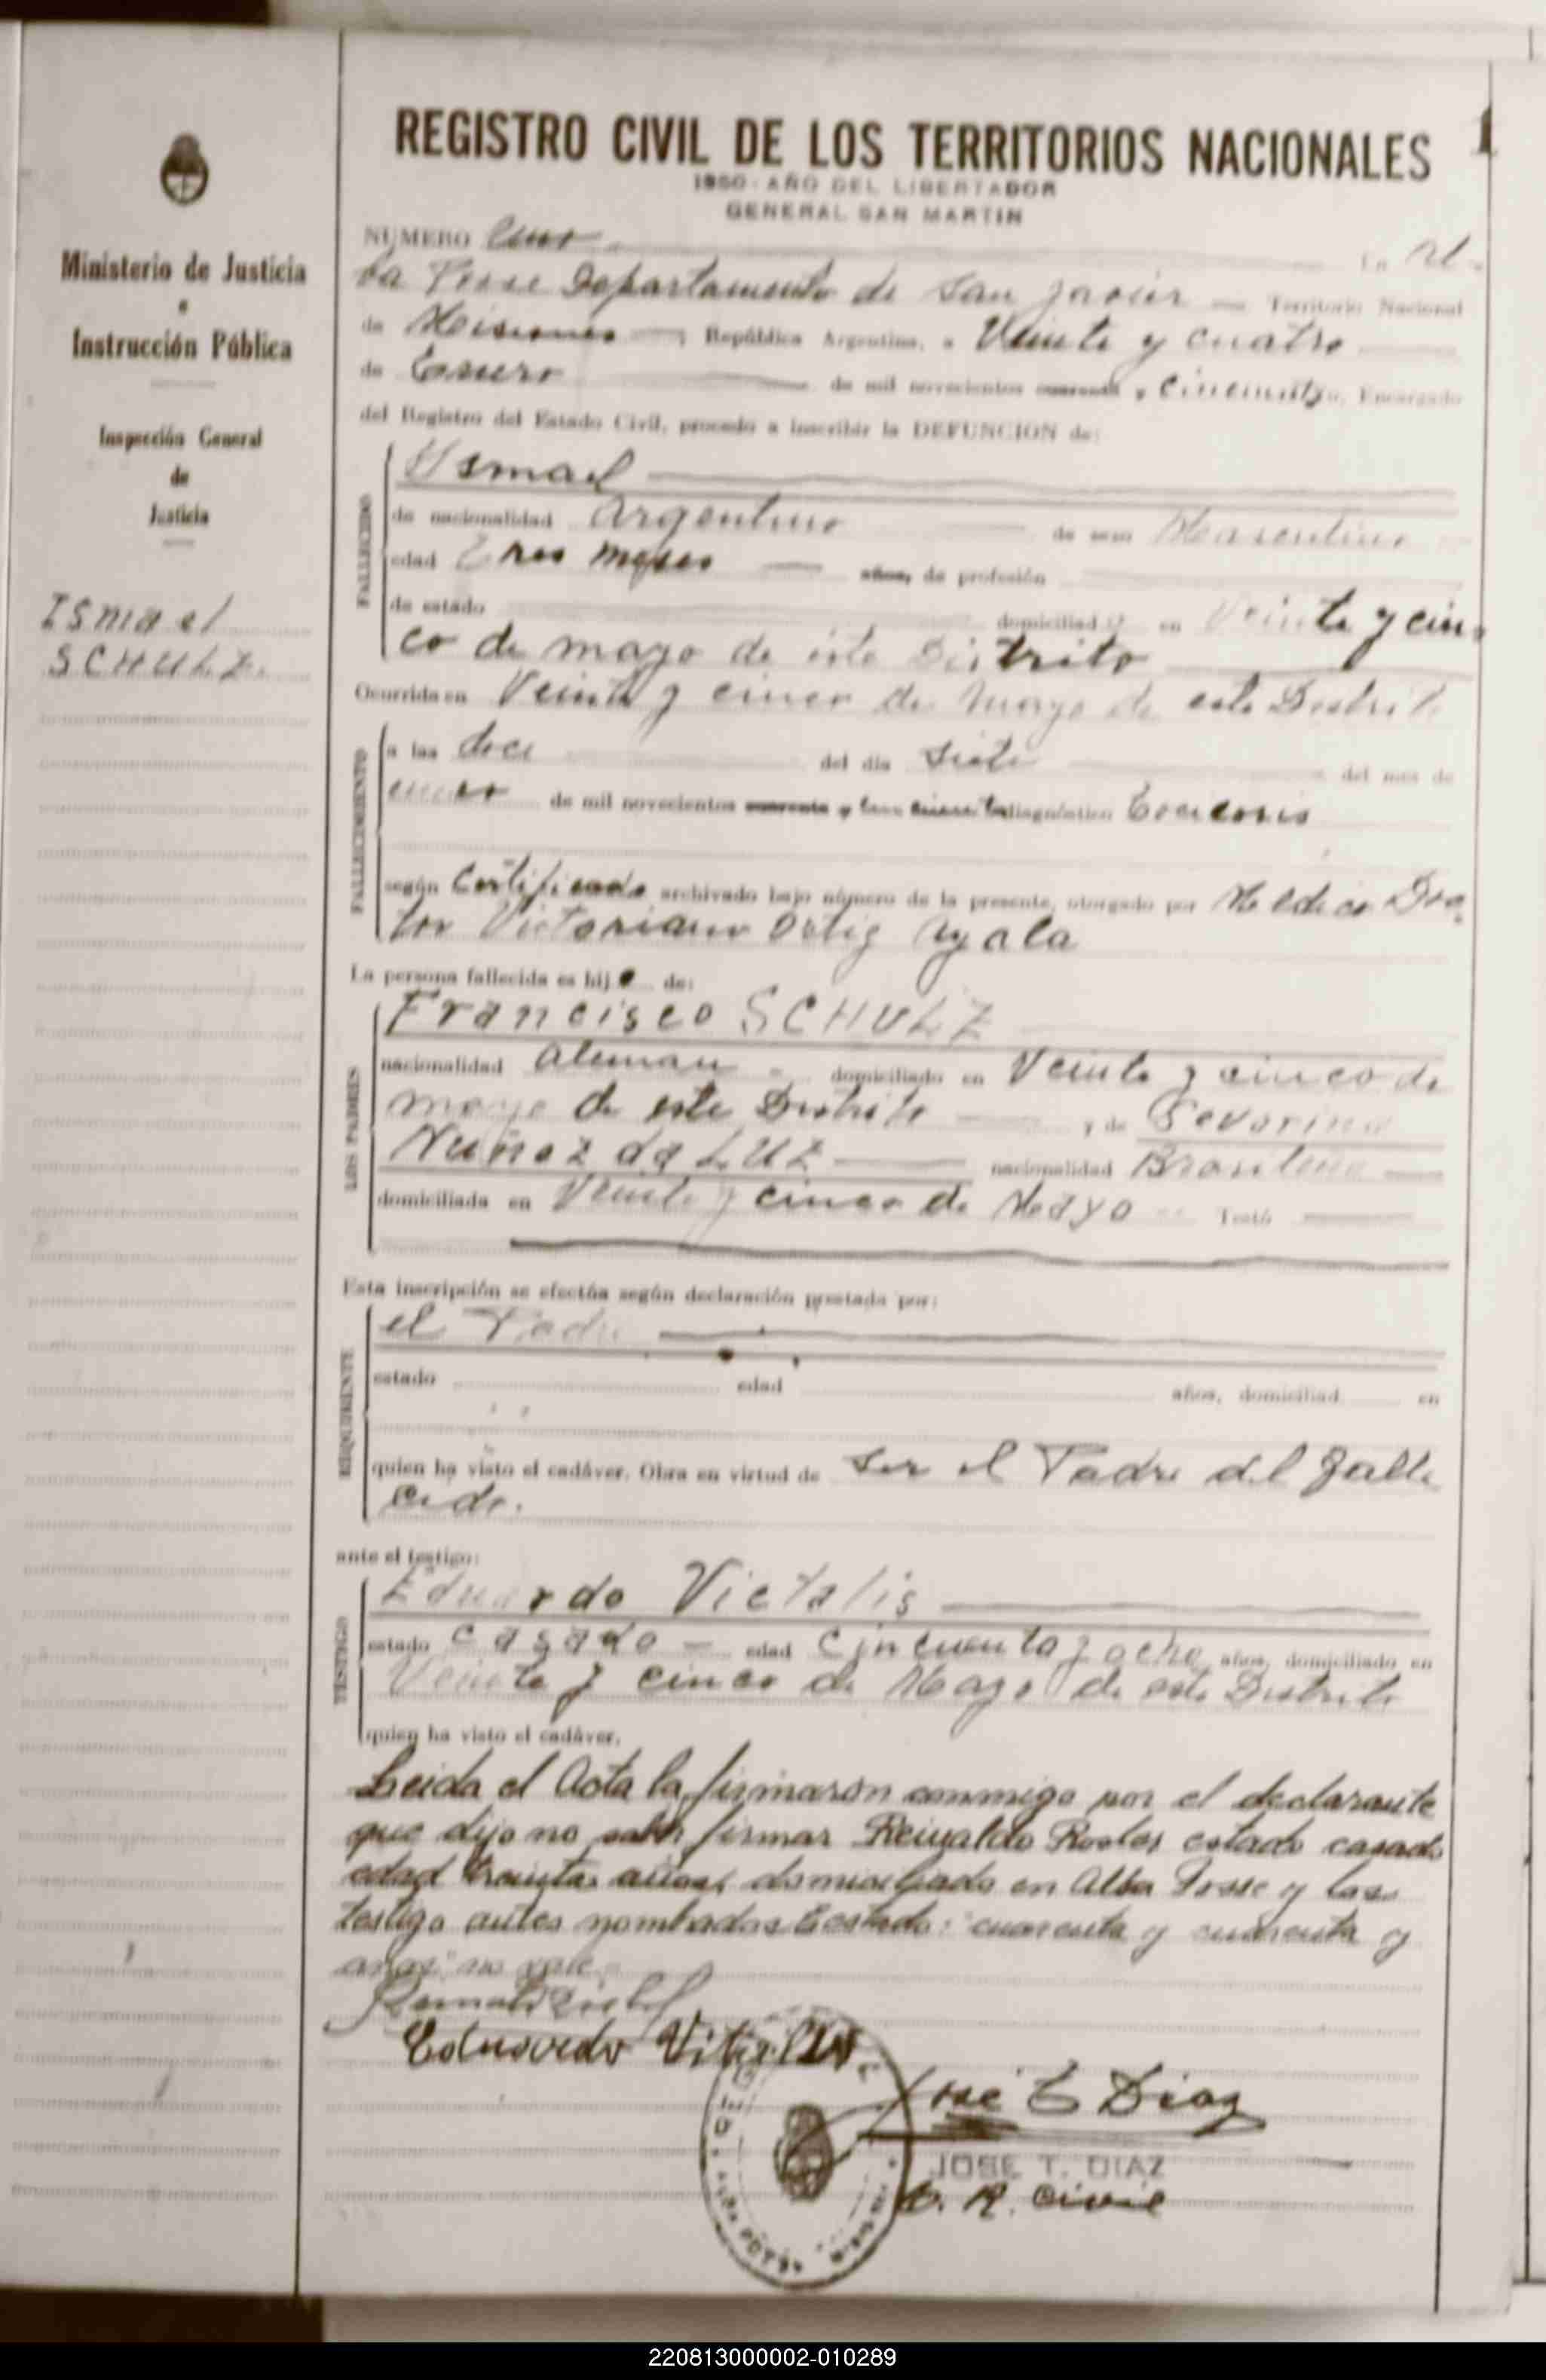 REGISTRO CIVIL DE LOS TERRITORIOS NACIONALES
1
1950 - AÑO DEL LIBERTADOR
GENERAL SAN MARTIN
Ministerio de Justicia
e
Instrucción Pública
Inspección General
de
Justicia
Ismael
SCHULZ.
NUMERO Uno En Al-
ba Posse Departamento de San Javier Territorio Nacional
de Misiones República Argentina, a Veinte y cuatro
de Enero de mil novecientos cuarenta y cincuenta yo, Encargado
del Registro del Estado Civil, procedo a inscribir la DEFUNCION de:
FALLECIDO
Ysmael
de nacionalidad Argentino de sexo Masculino
edad Tres meses años, de profesión
de estado domiciliado en Veinte y cin-
co de mayo de este Distrito
Ocurrida en Veinte y cinco de Mayo de este Distrito
FALLECIMIENTO
a las doce del día Siete del mes de
enero de mil novecientos cuarenta y cincuenta diagnóstico
según Certificado archivado bajo número de la presente, otorgado por Médico Doc-
tor Victoriano Ortiz Ayala
La persona fallecida es hijo de:
LOS PADRES
Francisco SCHULZ
nacionalidad Aleman domiciliado en Veinte y cinco de
mayo de este Distrito y de Severina
Nuñez da LUZ nacionalidad Brasileña
domiciliada en Veinte y cinco de Mayo Testó
Esta inscripción se efectúa según declaración prestada por:
REQUIRENTE
el Padre
estado edad años, domiciliad en
quien ha visto el cadáver. Obra en virtud de Ser el Padre del falle
cido.
ante el testigo:
TESTIGO
Eduardo Victalis
estado casado edad Cincuenta y ocho años, domiciliado en
Veinte y cinco de Mayo de este Distrito
quien ha visto el cadáver.
Leida el Acta la firmaron conmigo por el declarante
que dijo no saber firmar Reinaldo estado casado
edad treinta años domiciliado en Alba Posse y los
testigo antes nombrados Testado: cuarenta y cuarenta y
años no vale.
Eduardo Vitalis
José T Diaz
JOSE T. DIAZ
E. R. Civil
220813000002-010289